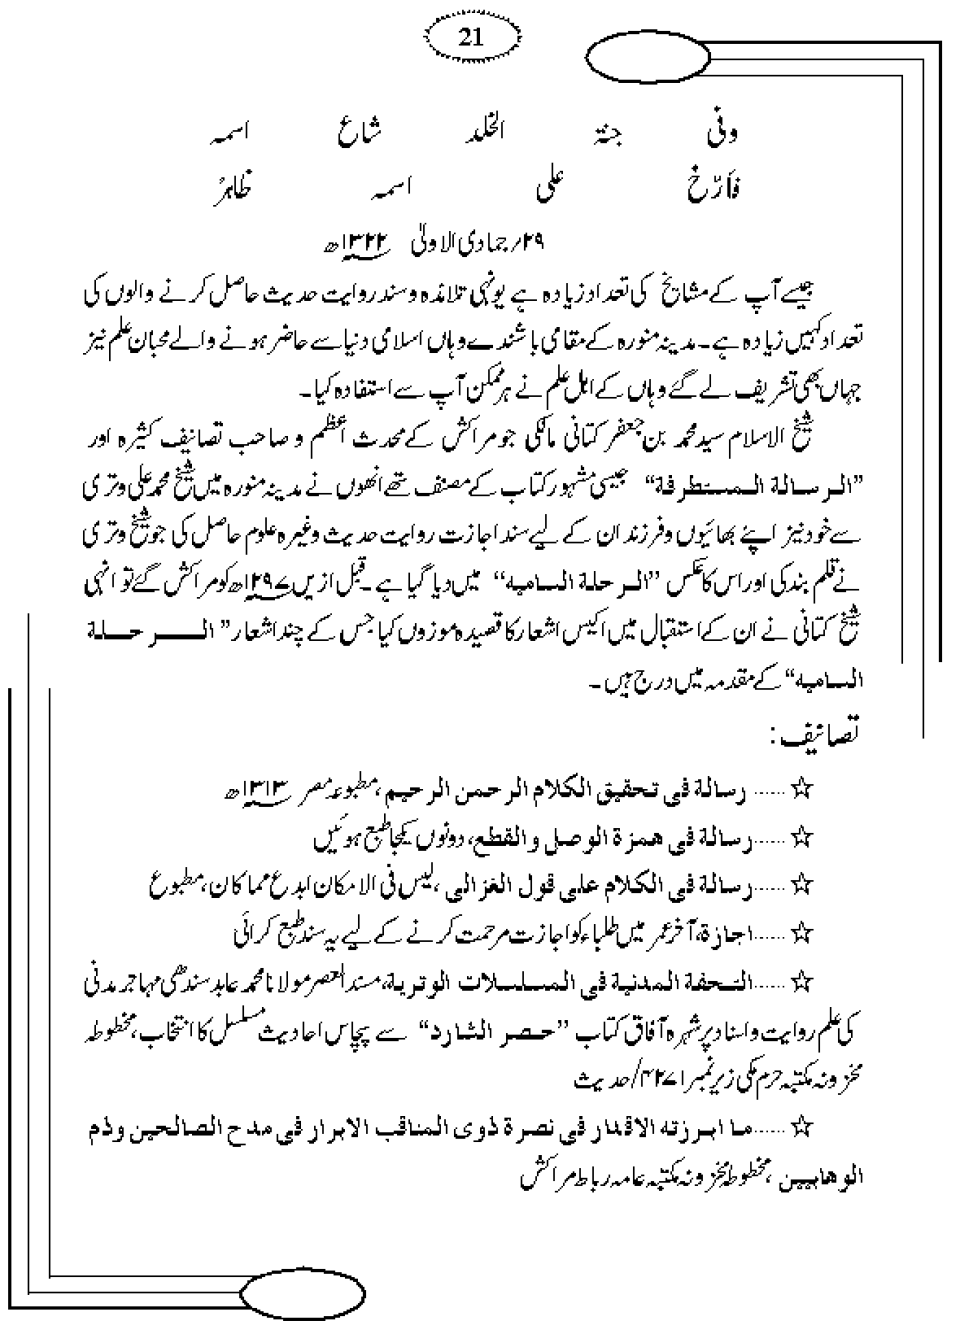 21
وفی جنۃ الخلد شاع اسمہ
فأرّخ علی اسمہ ظاہرٗ
۲۹؍ جمادی الاولیٰ ۱۳۲۲ھ
جیسے آپ کے مشایخ کی تعداد زیادہ ہے یونہی تلامذہ و سند روایت حدیث حاصل کرنے والوں کی
تعداد کہیں زیادہ ہے۔ مدینہ منورہ کے مقامی باشندے وہاں اسلامی دنیا سے حاضر ہونے والے محبان علم نیز
جہاں بھی تشریف لے گئے وہاں کے اہل علم نے ہر ممکن آپ سے استفادہ کیا۔
شیخ الاسلام سید محمد بن جعفر کتانی مالکی جو مراکش کے محدث اعظم و صاحب تصانیف کثیرہ اور
”الرسالة المستطرفة“ جیسی مشہور کتاب کے مصنف تھے انھوں نے مدینہ منورہ میں شیخ محمد علی وتری
سے خود نیز اپنے بھائیوں و فرزندان کے لیے سند اجازت روایت حدیث وغیرہ علوم حاصل کی جو شیخ وتری
نے قلم بند کی اور اس کا عکس ”الرحلة السامیه“ میں دیا گیا ہے۔ قبل ازیں ۱۲۹۷ھ کو مراکش گئے تو انہی
شیخ کتانی نے ان کے استقبال میں اکیس اشعار کا قصیدہ موزوں کیا جس کے چند اشعار ”الـــرحـــلة
السامیه“ کے مقدمہ میں درج ہیں۔
تصانیف:
☆ ...... رسالة فی تحقیق الکلام الرحمن الرحیم، مطبوعہ مصر ۱۳۱۳ھ
☆ ......رسالة فی همزة الوصل والقطع، دونوں یکجا طبع ہوئیں
☆ ......رسالة فی الکلام علی قول الغزالی، لیس فی الامکان ابدع مما کان، مطبوع
☆ ......اجازة، آخر عمر میں طلباء کو اجازت مرحمت کرنے کے لیے یہ سند طبع کرائی
☆ ......التحفة المدنية فی المسلسلات الوترية، مسند العصر مولانا محمد عابد سندھی مہاجر مدنی
کی علم روایت و اسناد پر شہرہ آفاق کتاب ”حصر الشارد“ سے پچاس احادیث مسلسل کا انتخاب، مخطوطہ
مخزونہ مکتبہ حرم مکی زیر نمبر ۴۲۷۱/حدیث
☆ ......ما ابرزته الاقدار فی نصرة ذوی المناقب الابرار فی مدح الصالحین وذم
الوهابیین، مخطوطہ مخزونہ مکتبہ عامہ رباط مراکش